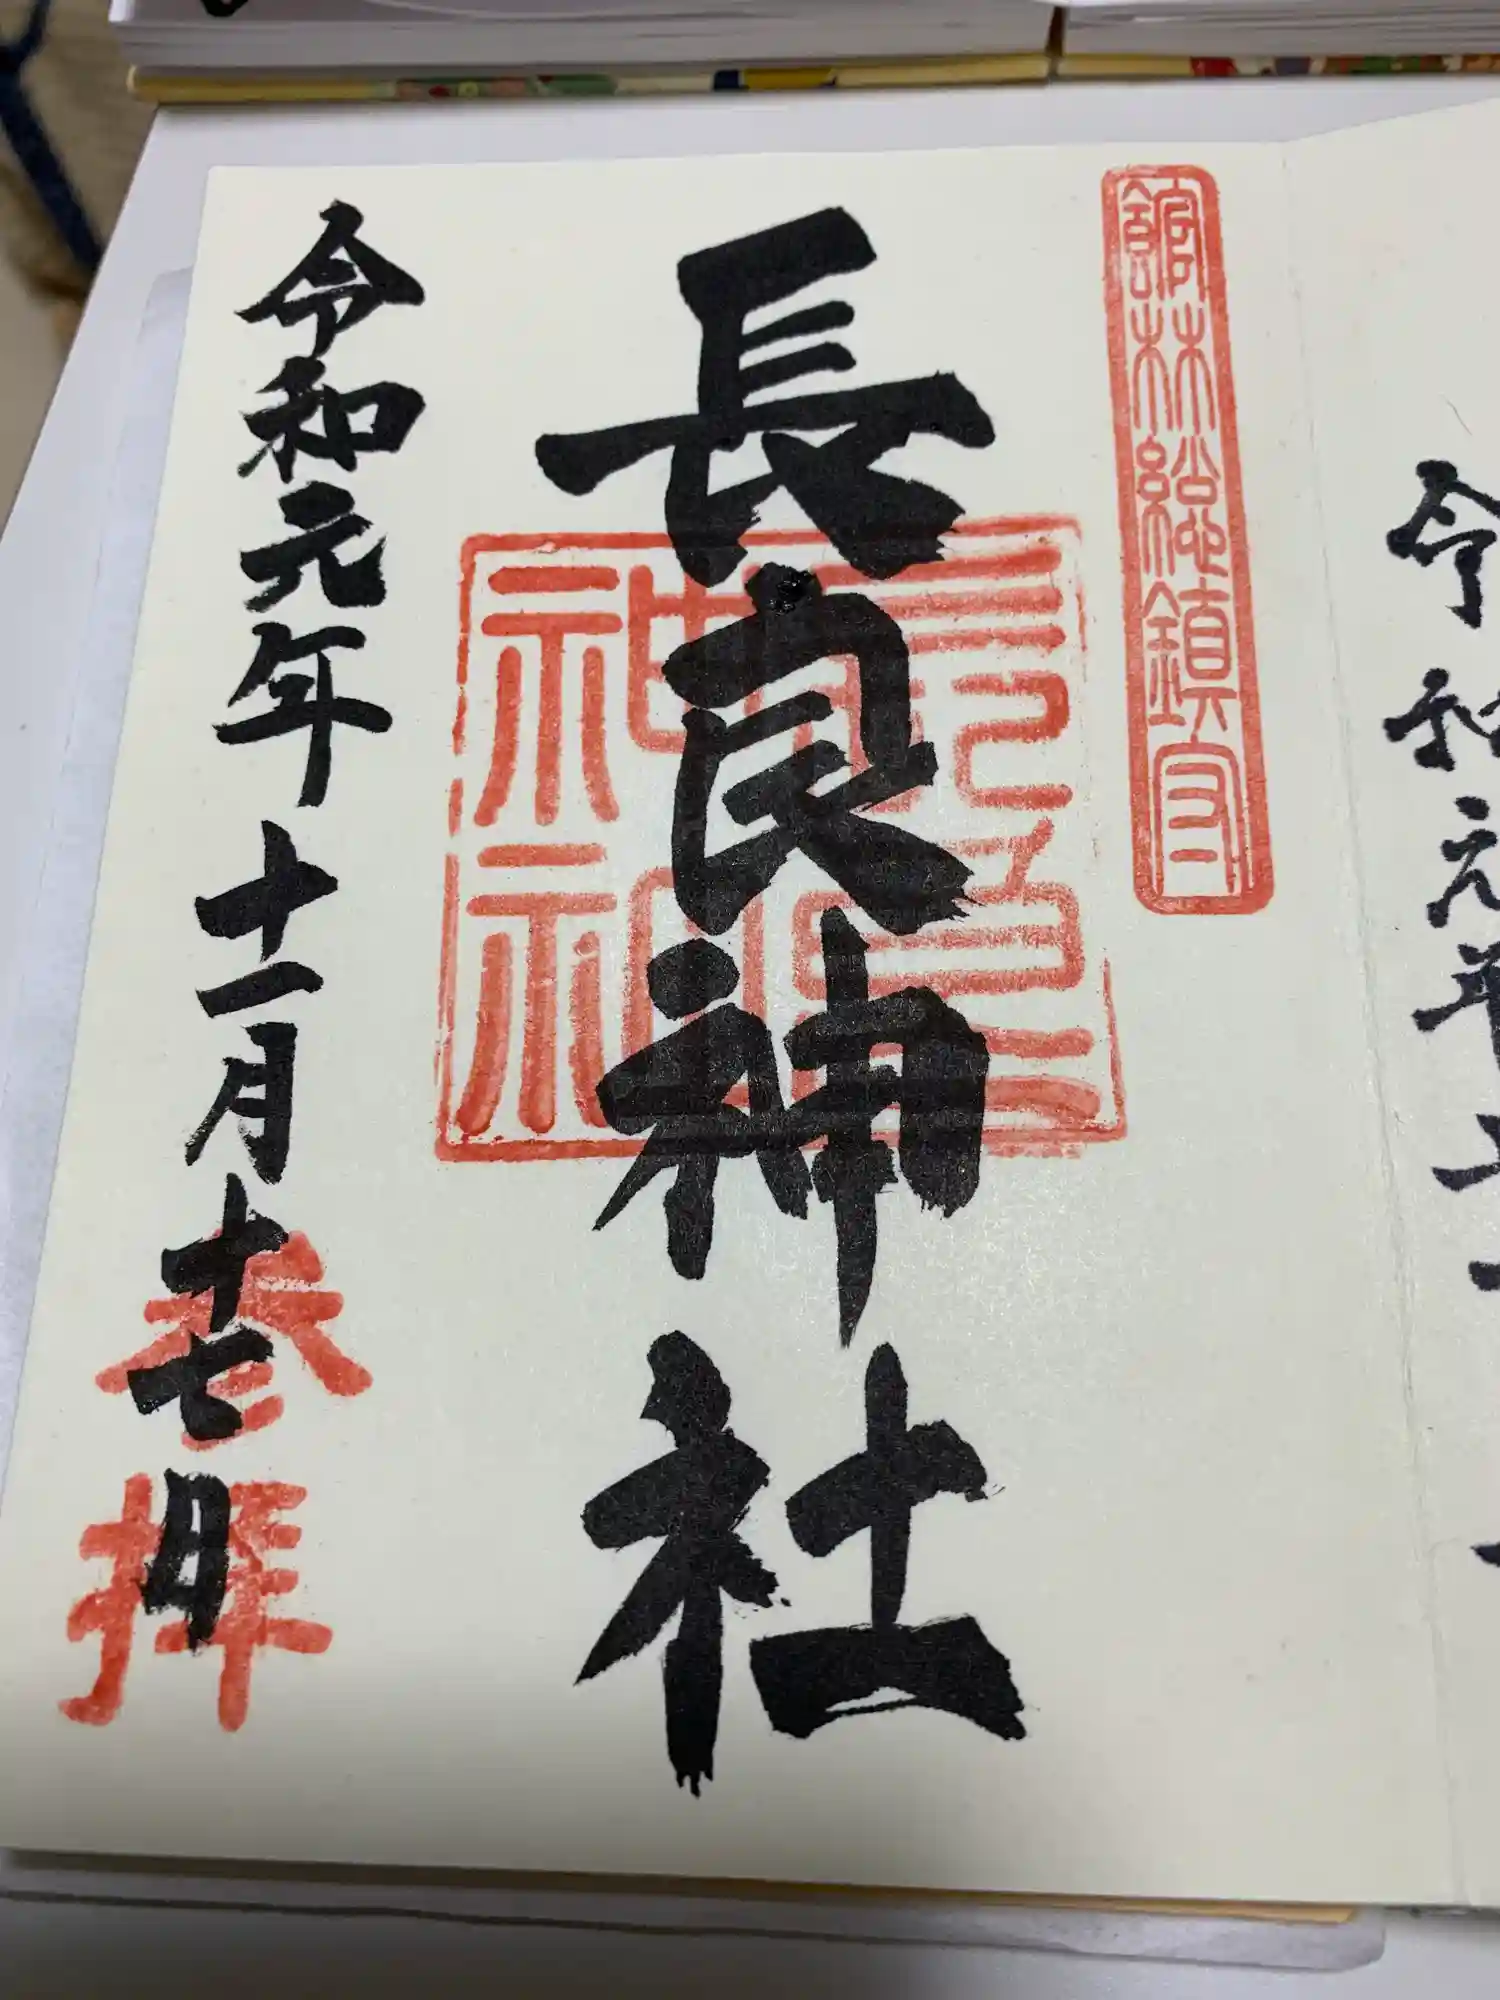 令和元年十
館林総鎮守
長良神社
長良神社
令和元年十一月十七日
奉拝